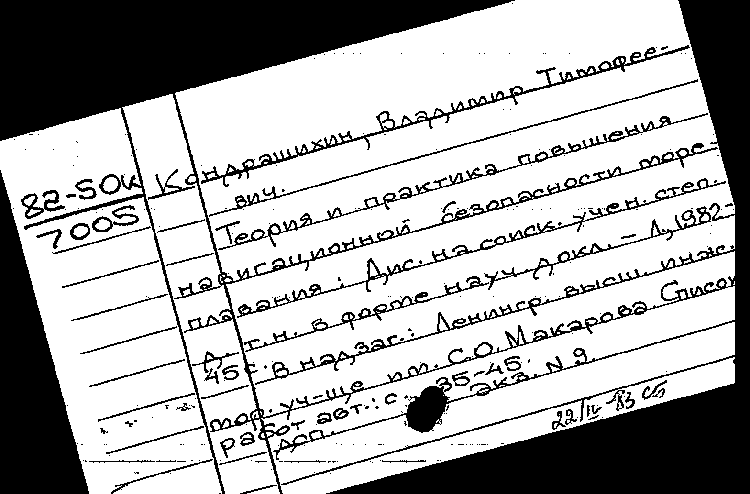 82-5ОК
7005
Кондрашихин, Владимир Тимофее-
вич.
Теория и практика повышения
навигационной безопасности море-
плавания: Дис. на соиск. учен. степ.
д.т.н. в форме науч. докл. - Л., 1982-
45 с. В надзаг.: Ленингр. высш. инж.
мор. уч-ще им. С.О. Макарова. Список
работ авт.: с. 35-45.
ДСП. экз. N 9.
22/IV-83